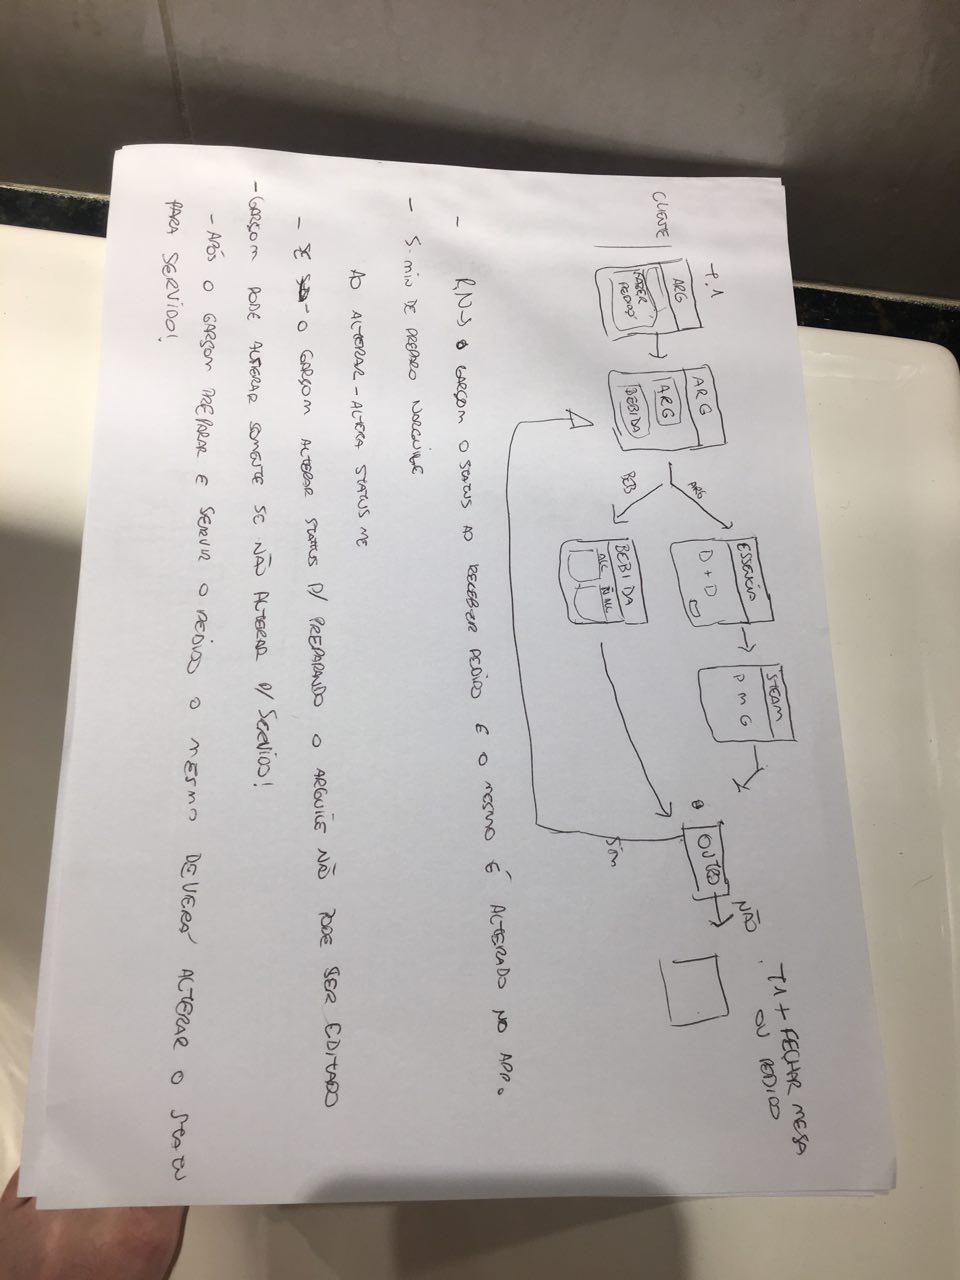 T.1
CLIENTE
ARG
FAZER
PEDIDO
ARG
ARG
BEBIDA
ARG
BEB
ESSENCIA
D + D
STEAM
P M G
BEBIDA
ALC
Ñ ALC
OUTRO
NÃO
SIM
T1 + FECHAR MESA
OU PEDIDO
- RNS GARÇOM O STATUS AO RECEBER PEDIDO E O MESMO É ALTERADO NO APP.
- 5. MIN DE PREPARO NARGUILE
AO ALTERAR - ALTERA STATUS ME
- SE O GARÇOM ALTERAR STATUS P/ PREPARANDO O ARGUILE NÃO PODE SER EDITADO
- GARÇOM PODE ALTERAR SOMENTE SE NÃO ALTERAR P/ SERVIDO!
- APÓS O GARÇOM PREPARAR E SERVIR O PEDIDO O MESMO DEVERÁ ALTERAR O STATU
PARA SERVIDO!